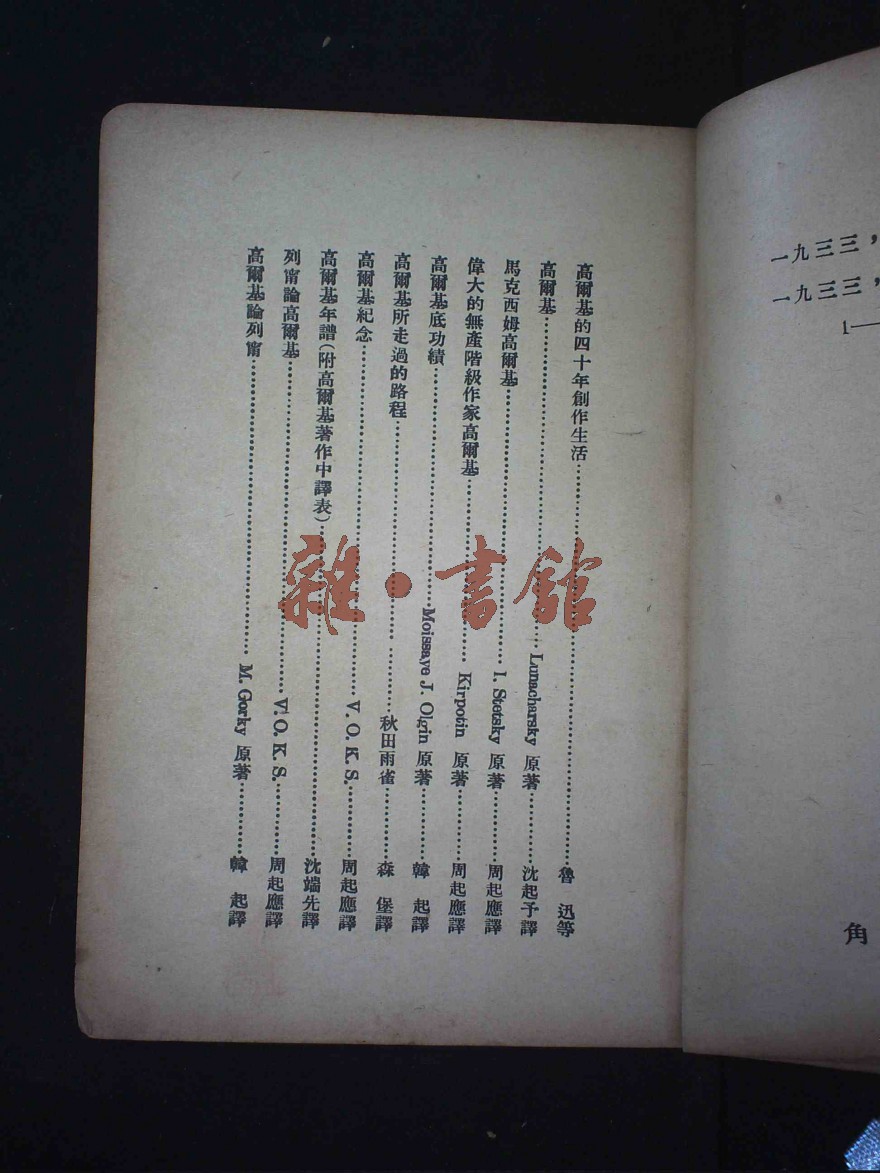 一九三三，
一九三三，
1—
角
高爾基的四十年創作生活……魯迅等
高爾基……Lunacharsky 原著……沈起予譯
馬克西姆高爾基……I. Stetsky 原著……周起應譯
偉大的無產階級作家高爾基……Kirpotin 原著……周起應譯
高爾基底功績……Moissaye J. Olgin 原著……韓起譯
高爾基所走過的路程……秋田雨雀……森堡譯
高爾基紀念……V. O. K. S.……周起應譯
高爾基年譜（附高爾基著作中譯表）……沈端先譯
列甯論高爾基……V. O. K. S.……周起應譯
高爾基論列甯……M. Gorky 原著……韓起譯
雜·書館